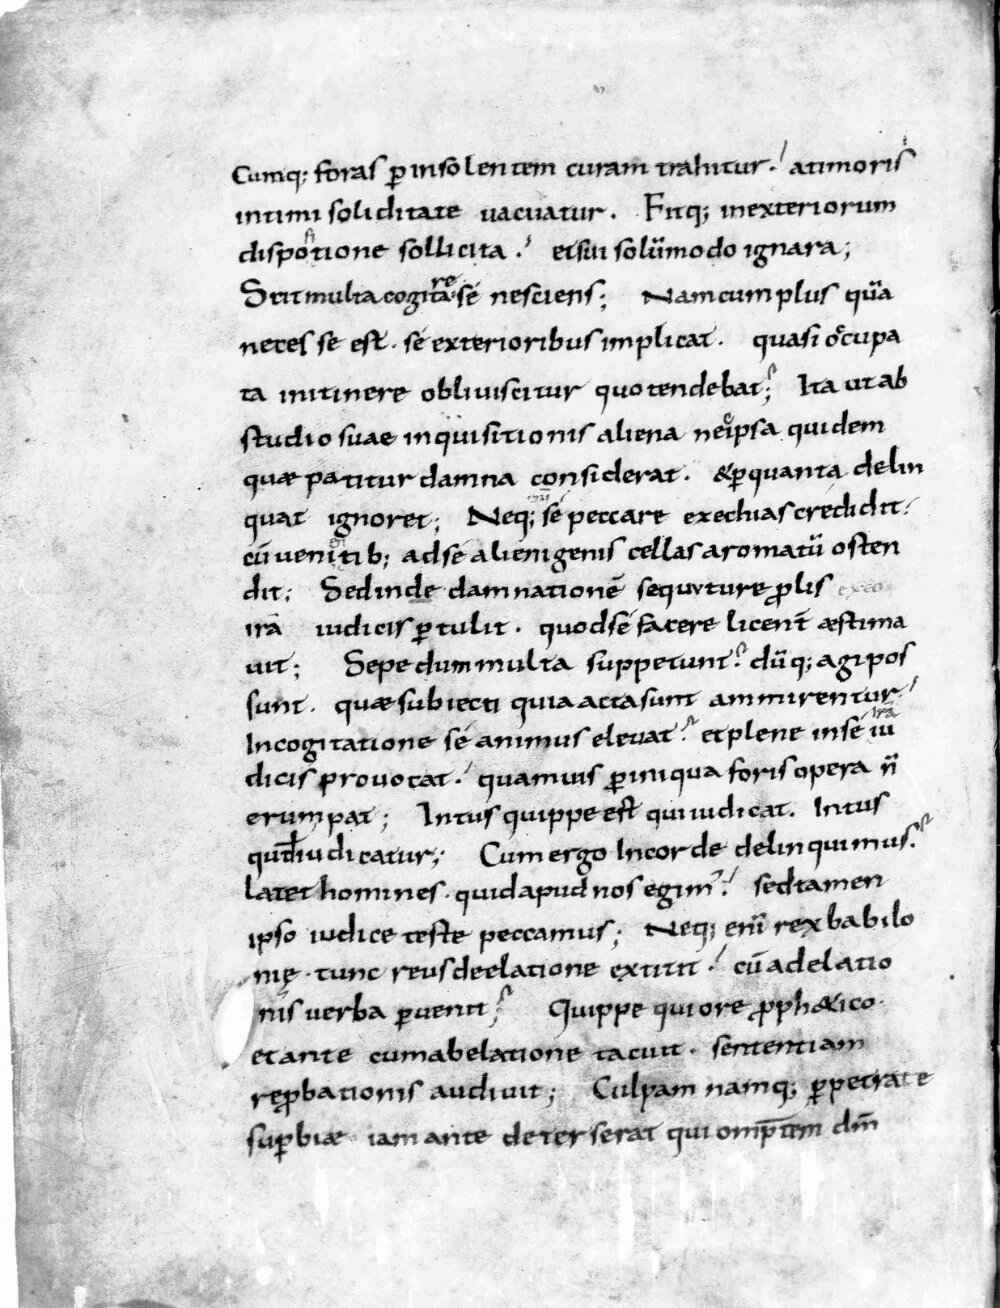 Cumq; foras ꝑ insolentem curam trahitur. a timoris
intimi soliditate vacuatur. Fitq; in exteriorum
disposi tione sollicita. et sui solūmodo ignara;
Scit multa cogitare. sé nesciens; Nam cum plus quā
neces se est. sé exterioribus implicat. quasi occupa
ta in itinere obliviscitur quo tendebat; Ita ut ab
studio suae inquisitionis aliena ne ipsa quidem
quæ patitur damna considerat. & ꝑ quanta delin
quat ignoret; Neq; enī sé peccare exechias credidit.
cū venientib; ad sé alienigenis cellas aromatū osten
dit; Sed inde damnationē sequuture ꝓlis
irā iudicis ꝑtulit. quod sé facere licenter æstima
uit; Sepe dum multa suppetunt. dūq; agi pos
sunt. quæ subiecti quia acta sunt ammirentur.
In cogitatione sé animus elevat. et plene in sé irā iu
dicis provocat. quamuis ꝑ iniqua foris opera n̄
erumpat; Intus quippe est qui iudicat. Intus
quod iudicatur; Cum ergo In corde delinquimus.
latet homines. quid apud nos egim᾽. sed tamen
ipso iudice teste peccamus; Neq; enī rex babilo
nię. tunc reus de elatione extitit. cū ad elatio
nis verba ꝑvenit; Quippe qui ore ꝓph&ico
et ante cum ab elatione tacuit. sententiam
reꝓbationis audivit; Culpam namq; ꝑpetratę
suꝑbiæ iam ante deterserat qui omp̄tem dm̄